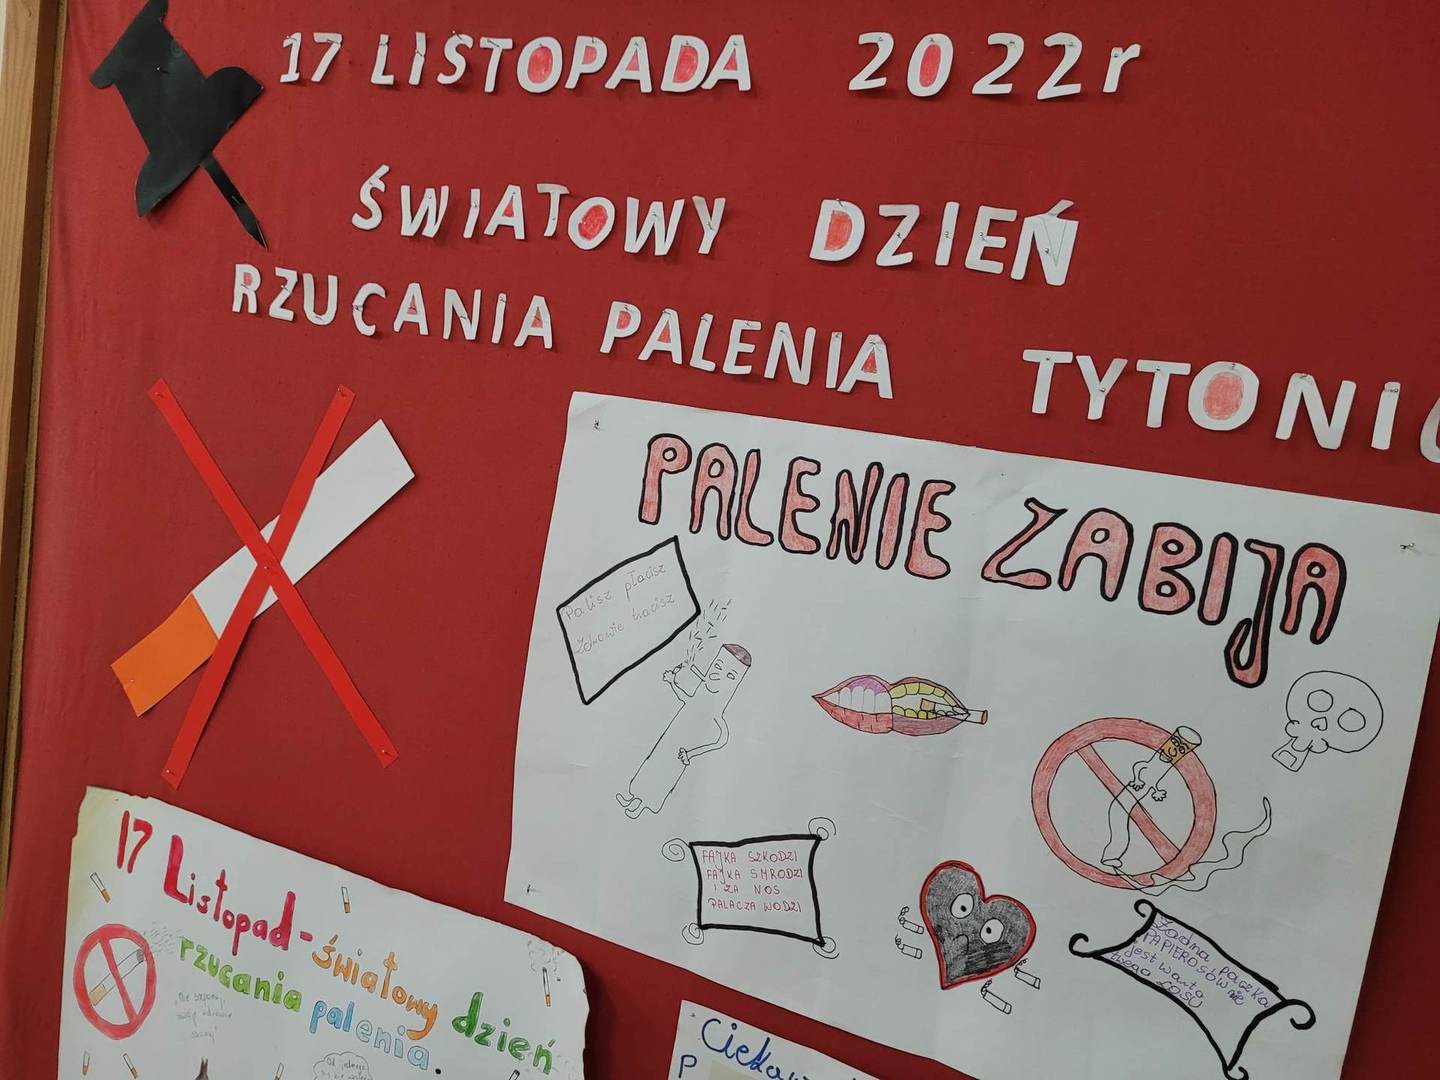 17 LISTOPADA 2022r
ŚWIATOWY DZIEŃ
RZUCANIA PALENIA TYTONIU
PALENIE ZABIJA
Palisz płacisz
Zdrowie tracisz
FAJKA SZKODZI
FAJKA SMRODZI
I ZA NOS
PALACZA WODZI
Żadna paczka
PAPIEROSÓW NIE
jest warta
twego ŁOSU
17 Listopad-światowy dzień
rzucania palenia.